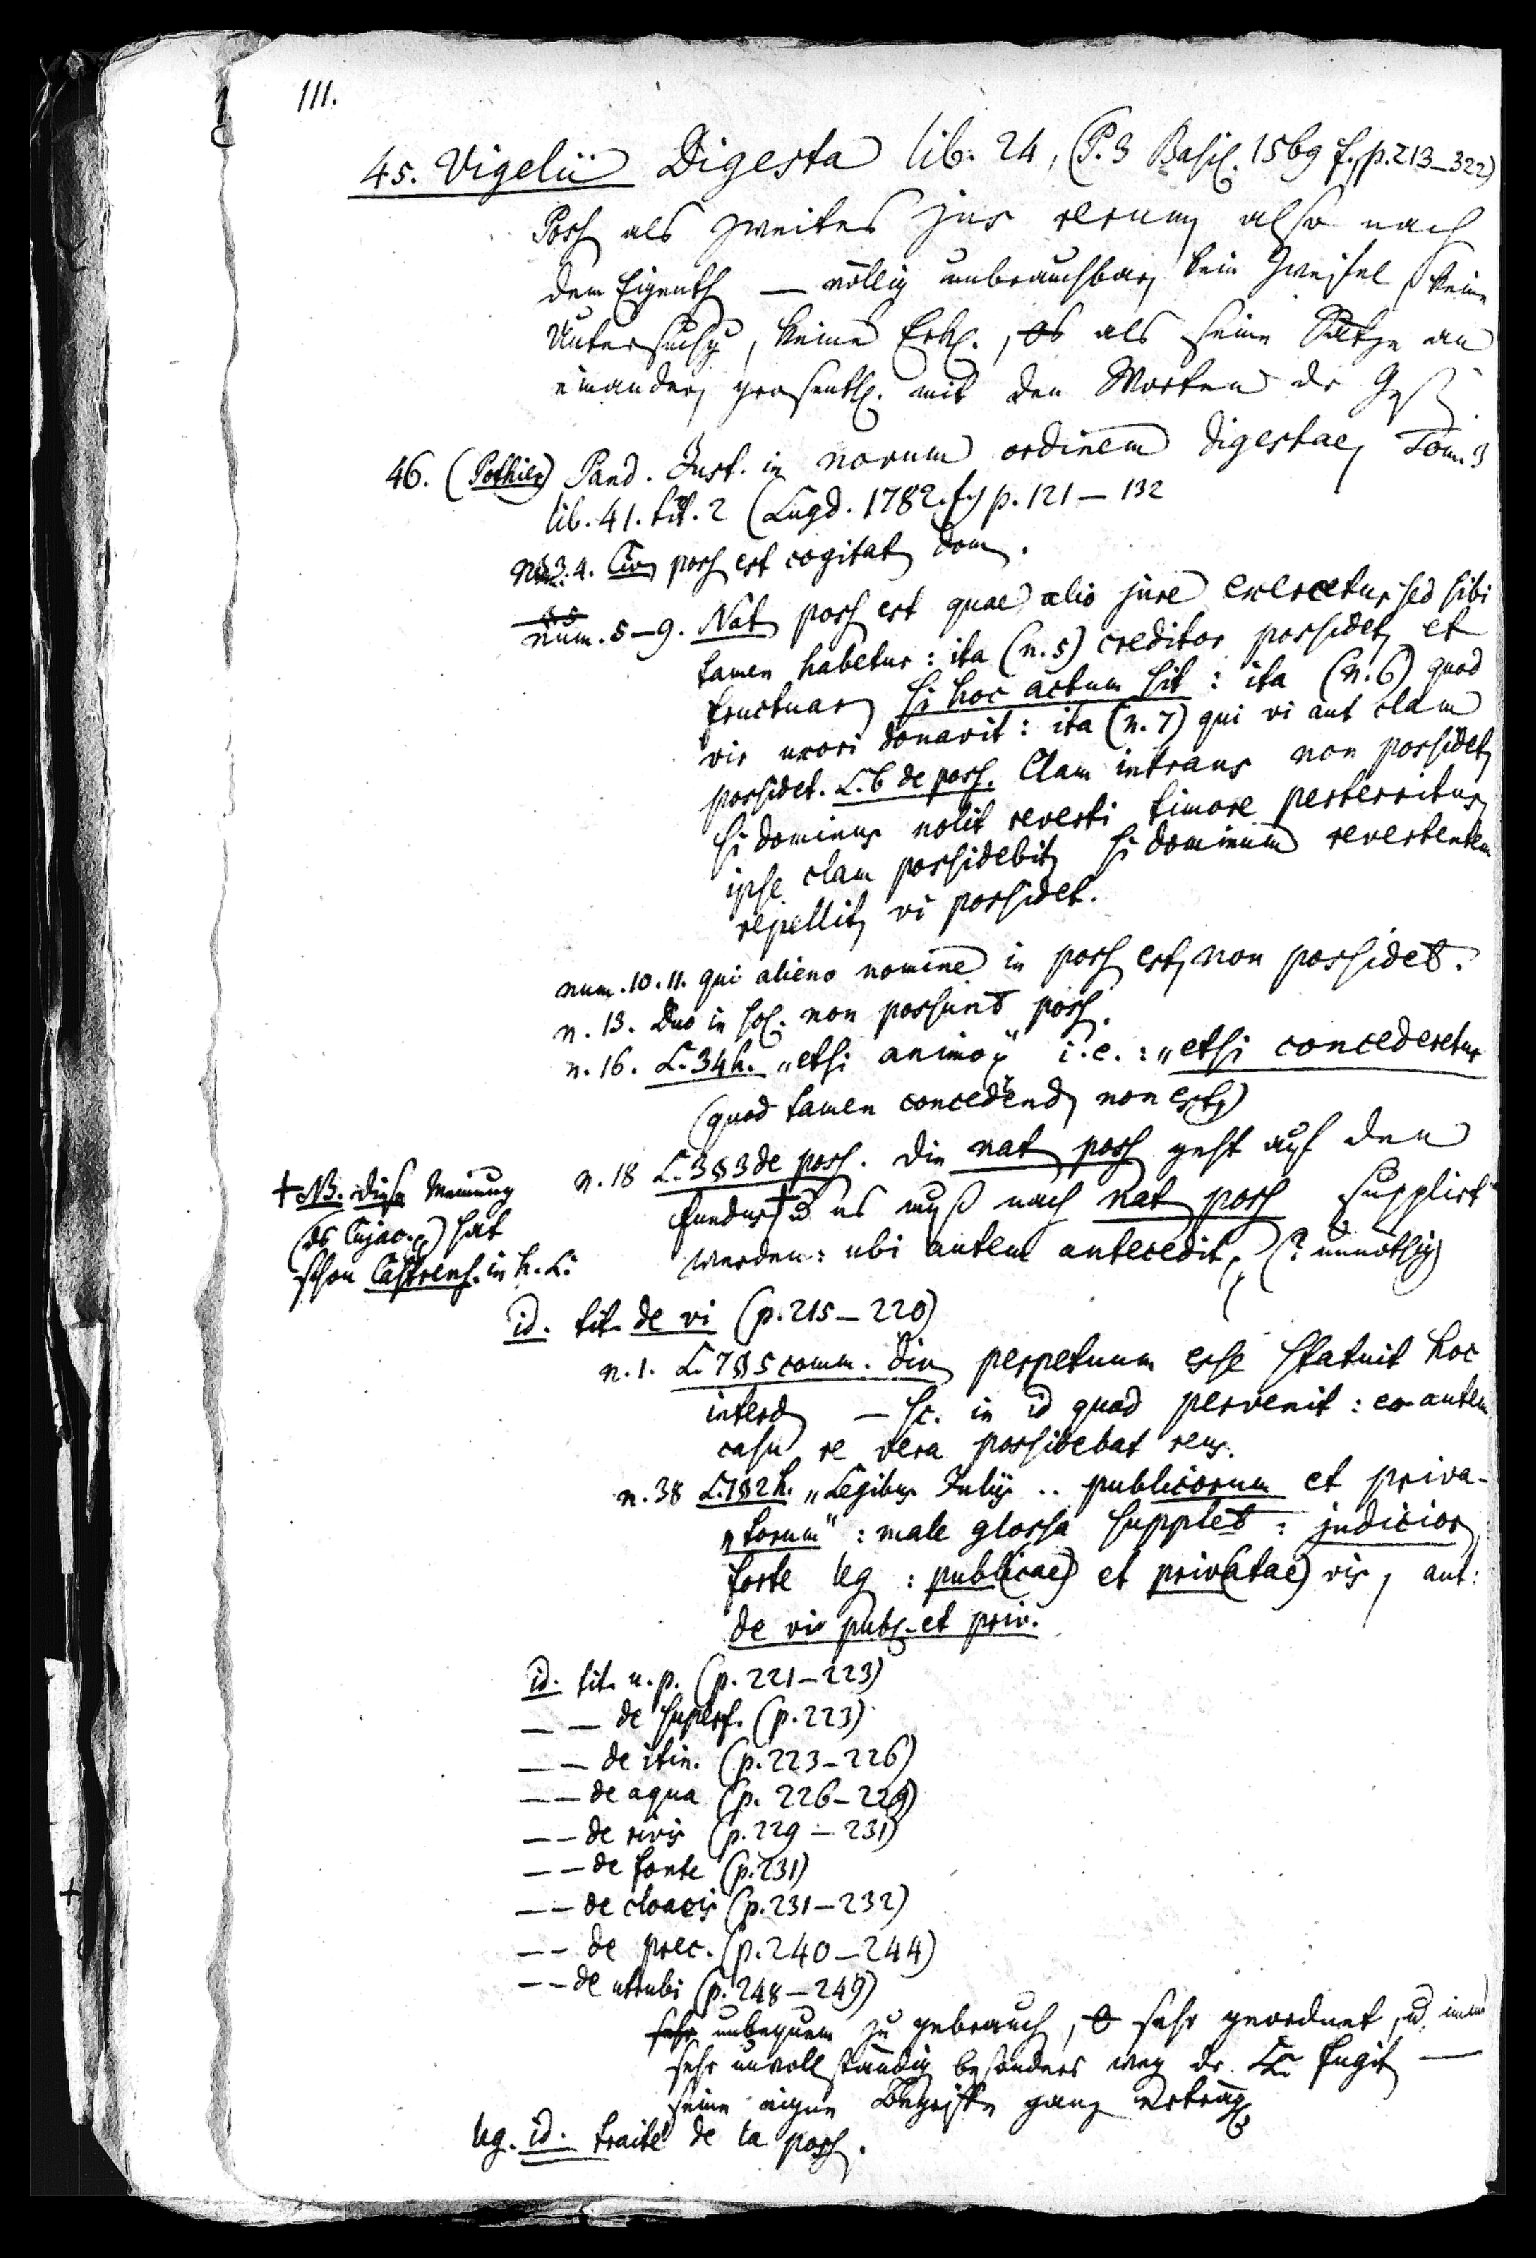 111.
45. Vigelii Digesta lib. 24, (P. 3 Basil. 1569 f. p. 213–322)
Poss als zweites jus rerum also nach
dem Eigenth — völlig unbrauchbar, kein Zweifel, keine
Untersuchg, keine Erkl., als seine Sätze an
einander, mit den Worten dr
46. (Pothier) Pand. Just. in novum ordinem digestae, Tom. 3
lib. 41. tit. 2 (Lugd. 1782. f.) p. 121 – 132
n. 3. 4. Civ poss est cogitat dom.
num. 5–9. Nat poss est quae alio jure exercetur sed sibi
tamen habetur: ita (n. 5) creditor possidet, et
fructuar, si hoc actum sit: ita (n. 6) quod
vir uxori donavit: ita (n. 7) qui vi aut clam
possidet. L. 6 de poss. Clam intrans non possidet,
si dominus nolit reverti timore perterritus,
ipse clam possidebit, si dominum revertentem
repellit, vi possidet.
num. 10. 11. qui alieno nomine in poss est, non possidet.
n. 13. Duo in sol. non possunt poss.
n. 16. L. 34 h. „etsi animo" i. e.: „etsi concederetur
(quod tamen concedend, non est)
n. 18 L. 3 § 3 de poss. die nat poss geht auf den
fundus † u es muß nach nat poss supplirt
werden: ubi autem antecedit, (? unnöthig)
† NB. diese Meinung
(ds Cujac.) hat
schon Castrens. in h. L.
id. tit. de vi (p. 215–220)
n. 1. L. 7 § 5 comm. div perpetuum esse statuit hoc
interd — sc. in id quod pervenit: eo autem
casu re vera possidebat reus.
n. 38 L. 1 § 2 h. „Legibus Juliis .. publicorum et priva-
„torum": male glossa supplet: judicior,
forte leg: publ(icae) et priv(atae) vis, aut:
de vi publ. et priv.
id. tit. u. p. (p. 221–223)
— — de superf. (p. 223)
— — de itin. (p. 223–226)
— — de aqua (p. 226–229)
— — de rivis (p. 229–231)
— — de fonte (p. 231)
— — de cloacis (p. 231–232)
— — de prec. (p. 240–244)
— — de utrubi (p. 248–249)
sehr unbequem zu gebrauch, sehr geordnet, u.
sehr unvollständig besonders weg dr LL. fugit —
seine eigne Begriffe ganz
leg. id. traité de la poss.